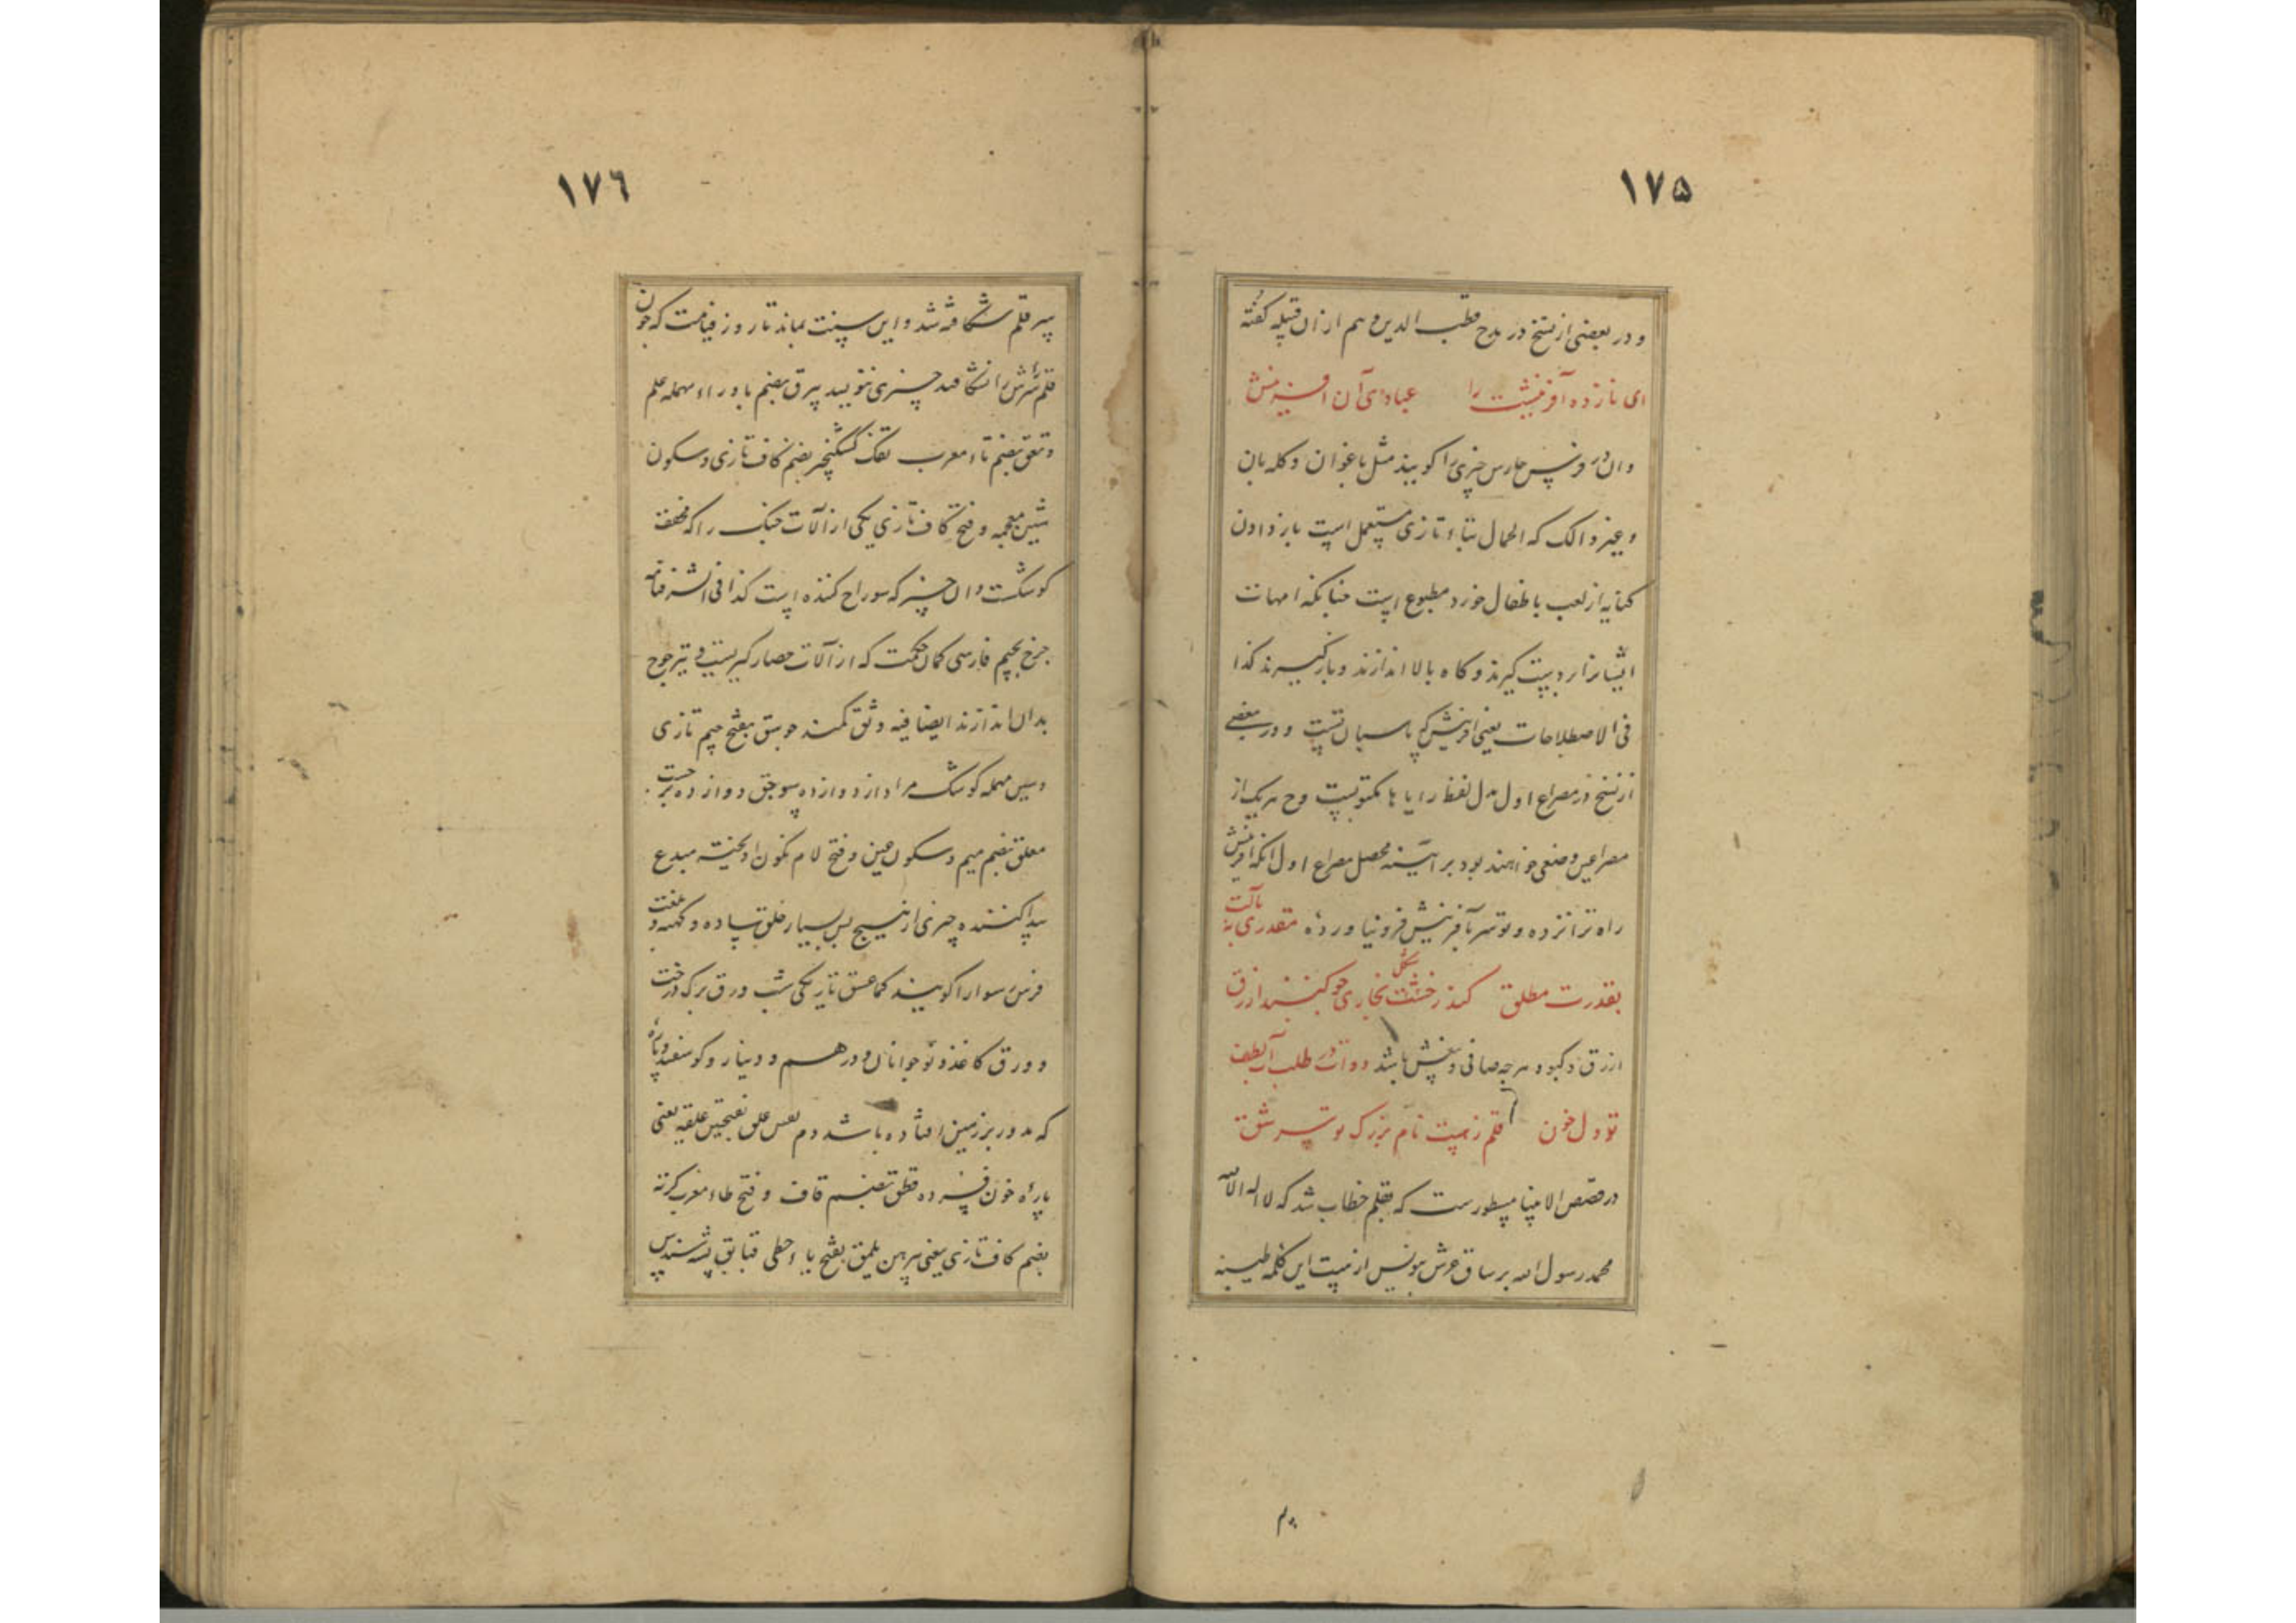 ١٧۵
و در بعضی از نسخ در مدح قطب الدین هم ازان قبیله گفته
ای نازده آفرینشت را
وان در فرس حارس چیزی را کویند مثل باغوان و کله بان
و غیر ذالک که الحال بباء تازی مستعمل است بازدادن
کنایه از لعب باطفال خورد مطبوع است چنانکه امهات
ایشانرا بر دست کیرند و کاه بالا اندازند و باز کیرند کذا
فی الاصطلاحات یعنی افرینش که پاسبان تست و در بعضے
از نسخ در مصراع اول بدل لفظ را یا با مکتوبست وح هر یک از
مصراعین وصفی خواهند بود بر آئینه محصل مصراع اول انکه افرینش
راه ترا نزده و توسر بآفرینش فرو نیاورده مقدری نه بآلت
بقدرت مطلق کند ز شکل بخاری چو کنبد ازرق
ازرق کبود و هرچه صافی و بیغش باشد دوات در طلب آب لطف
تو دل خون قلم ز هیبت نام بزرک تو سر شق
در قصص الانبیا مسطورست که بقلم خطاب شد که لا اله الا الله
محمد رسول الله بر ساق عرش بنویس از هیبت این کلمه طیبه
١٧٦
سر قلم شکافته شد و این سنت بماند تا روز قیامت که چون
قلم را سرش را نشکافند چیزی ننویسد بیرق بفتح با و راء مهمله علم
و تفق بضم تاء معرب تفک کشکنجیر بضم کاف تازی و سکون
شین معجمه و فتح کاف تازی یکی از آلات جنک را که مخفف
کوشکست و ان چیز که سوراخ کننده است کذا فی الشرفنامه
چرخ بجیم فارسی کمان حکمت که از آلات حصار کیریست و تیر چرخ
بدان اندازند ایضا فیه وثق کمند جوسق بفتح جیم تازی
و سین مهمله کوشک مراد از دوازده جوسق دوازده برجست
معلق بضم میم و سکون عین و فتح لام نکون اویخته مبدع
پیدا کننده چیزی از هیچ بس بسیار خلق ساده و کهنه و عفت
فرس سوار را کویند کما غسق تاریکی شب ورق برک درخت
و ورق کاغذ و نوجوانان و درهم و دینار و کوسفند و پاره
که مدور بر زمین افتاده باشد دم نفس علق بفتحتین علقه یعنی
پارهٔ خون فسرده قطق بضم قاف و فتح طاء معرب کرته
بضم کاف تازی یعنی پیرهن یلمق بفتح یاء حطی قبا